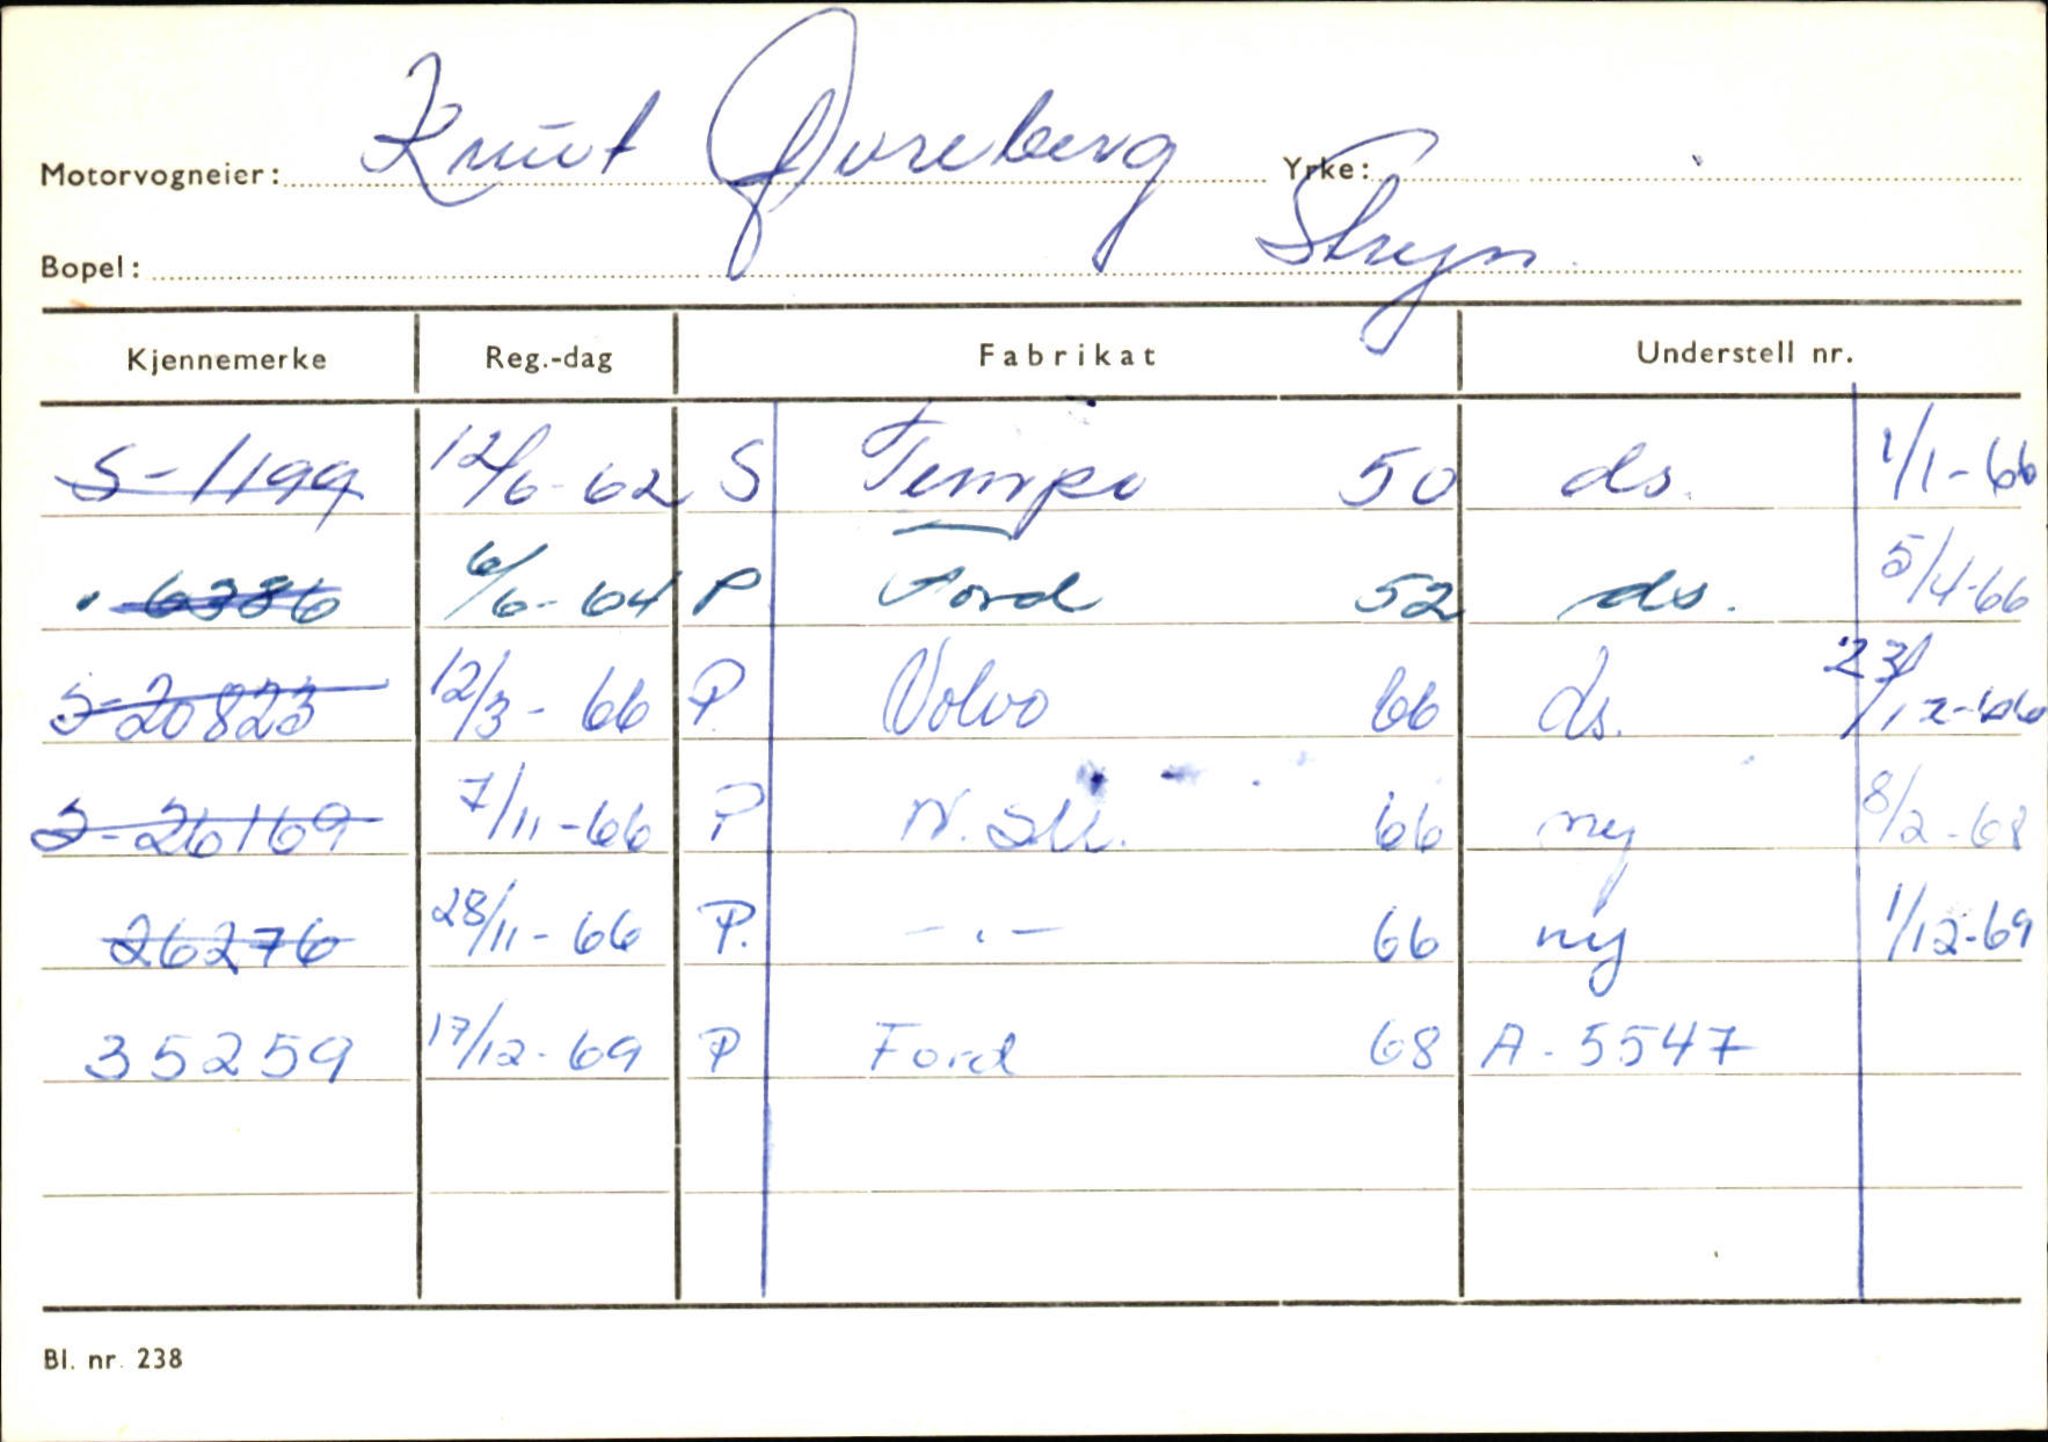 Motorvogneier: Knut Yrke:
Bopel: Stryn
Kjennemerke Reg.-dag Fabrikat Understell nr.
S-1199 12/6-62 S Tempo 50 ds. 1/1-66
" 6386 6/6-64 P Ford 52 ds. 5/4-66
S-20823 12/3-66 P Volvo 66 ds. 23/12-66
S-26169 7/11-66 P 66 ny 8/2-68
26276 28/11-66 P. -"- 66 ny 1/12-69
35259 17/12-69 P Ford 68 A-5547
Bl. nr. 238